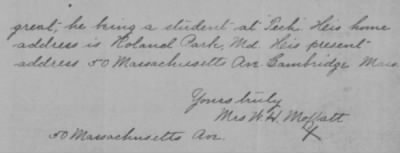 great, he being a student at "Tech". His home
address is Roland Park, Md. His present
address 50 Massachusetts Ave. Cambridge Mass.
Yours truly
Mrs W. H. Moffatt
50 Massachusetts Ave.